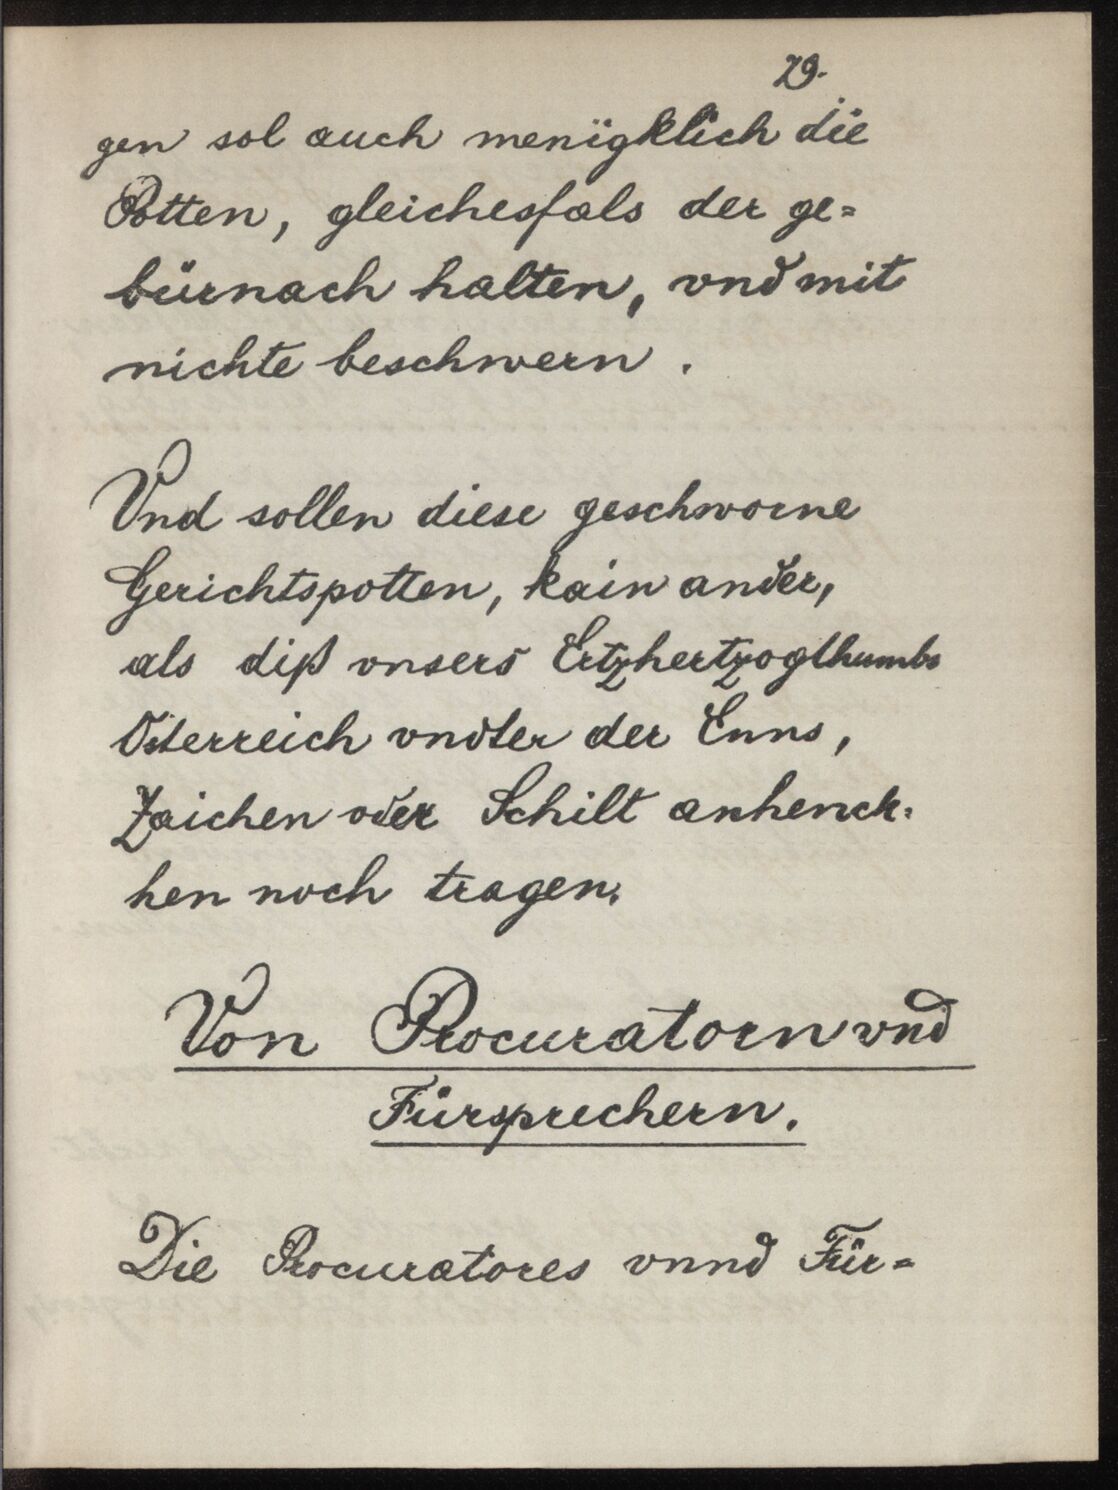 29.
gen sol auch menigklich die
Potten, gleichesfals der ge=
bürnach halten, vnd mit
nichte beschwern.
Vnd sollen diese geschworne
Gerichtspotten, kain ander,
als diß vnsers Ertzhertzogthumbs
Österreich vndter der Enns,
Zaichen oder Schilt anhenck=
hen noch tragen.
Von Procuratorn vnd
Fürsprechern.
Die Procuratores vnnd Für=